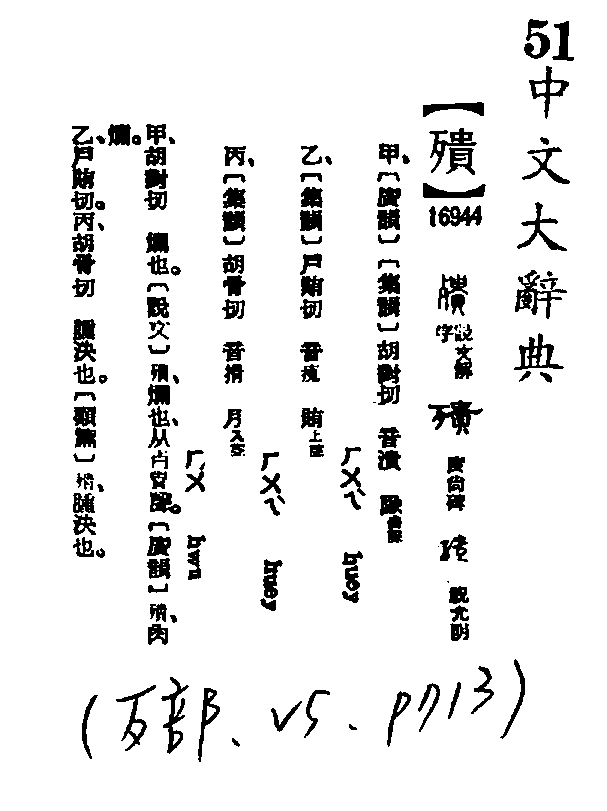 51
中文大辭典
【殨】
16944
說文解字
廣尚碑
祝允明
甲、〔廣韻〕〔集韻〕胡對切 音潰 隊去聲
ㄏㄨㄟˋ huey
乙、〔集韻〕戶賄切 音瘣 賄上聲
ㄏㄨㄟˋ huey
丙、〔集韻〕胡骨切 音搰 月入聲
ㄏㄨ hwu
甲、胡對切 爛也。〔說文〕殨、爛也、从歺貴聲。〔廣韻〕殨、肉
爛。
乙、戶賄切。丙、胡骨切 腫決也。〔類篇〕殨、腫決也。
(歹部、V5、P713)